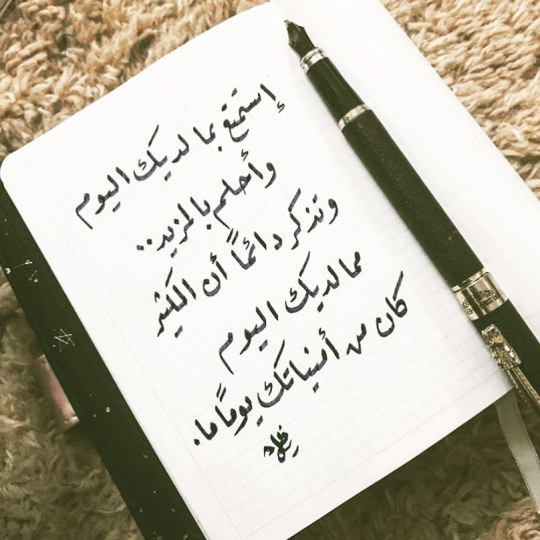 إستمتع بما لديك اليوم
وأحلم بالمزيد..
وتذكر دائماً أن الكثير
مما لديك اليوم
كان من أمنياتك يوماً ما.